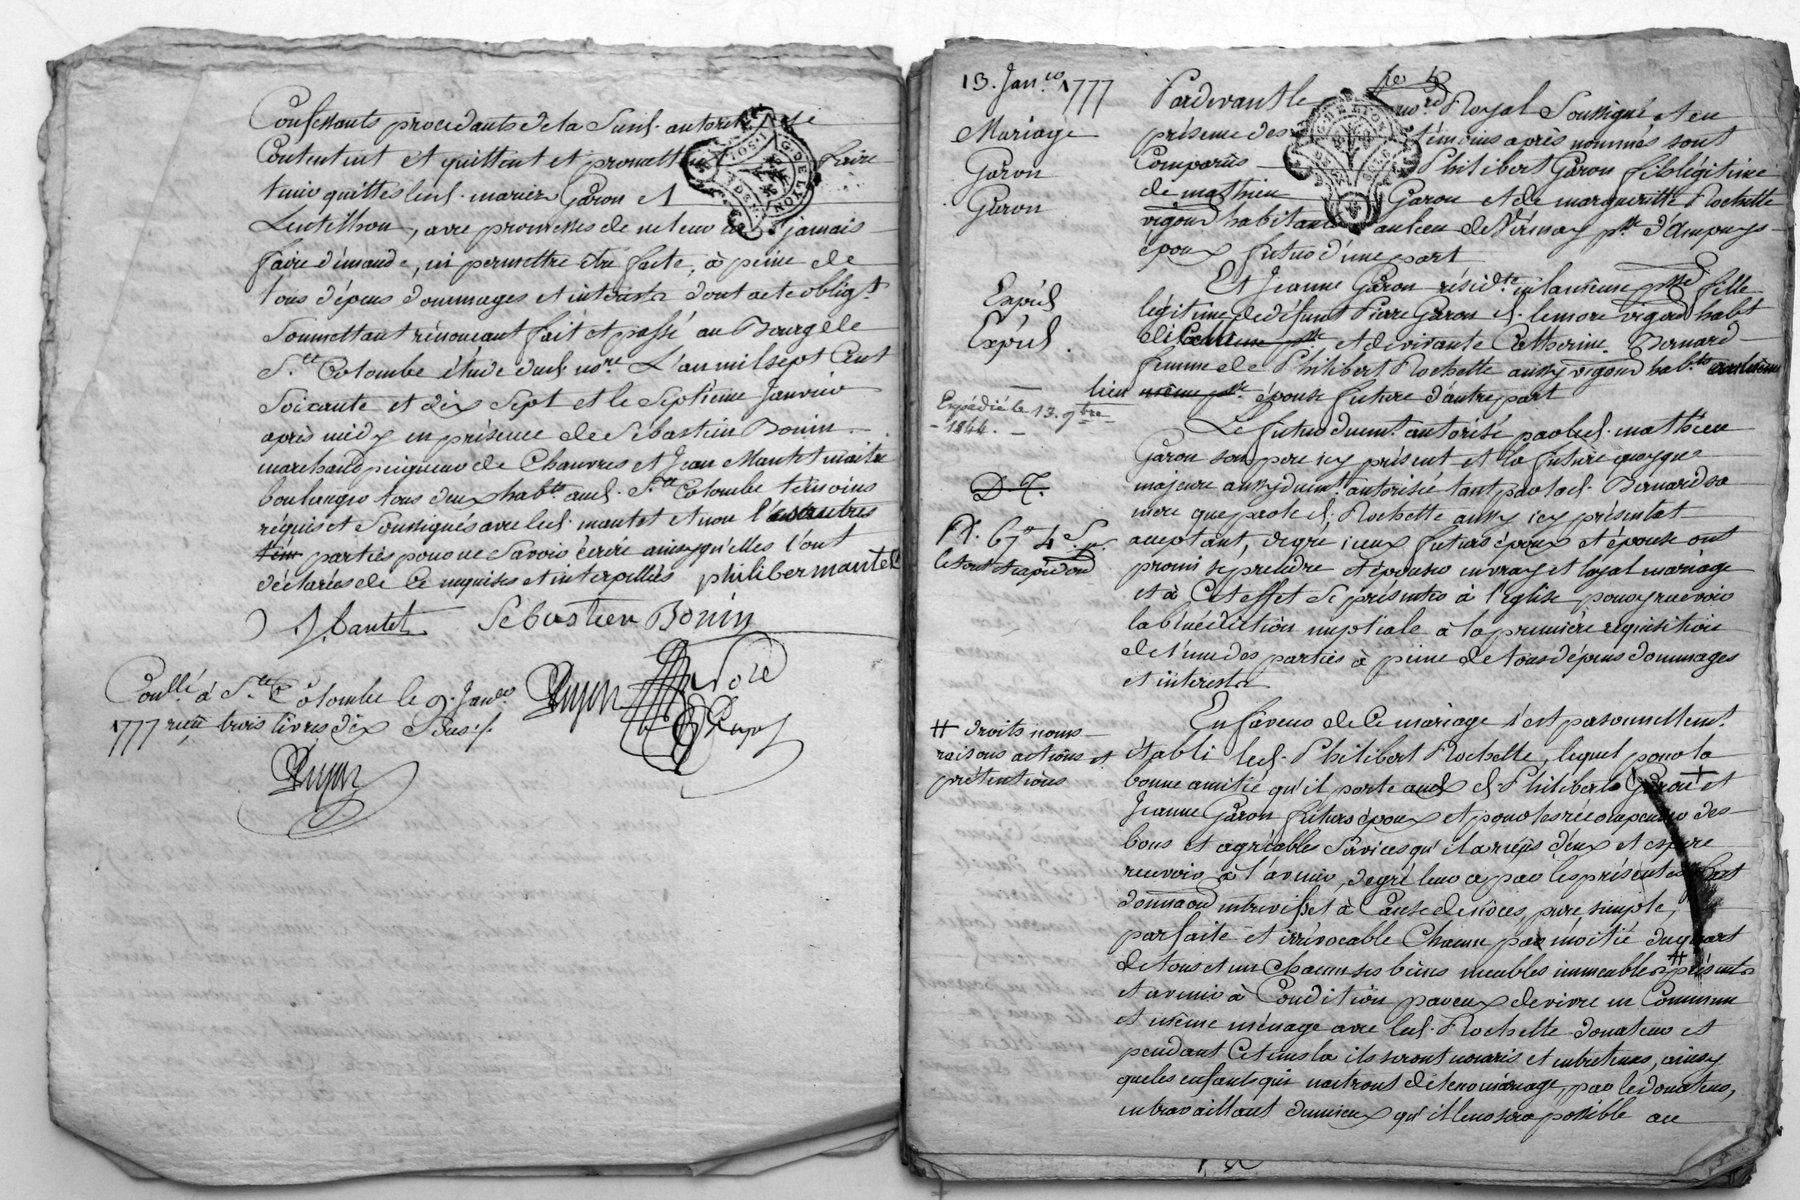 Confessants procedants de la susd. autorité se
Contentent et quittent et promettent faire
tenir quittes lesd. mariez Garon et
Lentillon, avec promesses de ne leur en jamais
faire demande, ni permettre être faite, à peine de
tous dépens dommages et interests dont acte obligt.
Soumettant rénonceant fait et passé au Bourg de
Ste. Colombe étude dud. nore. L'an mil sept Cent
Soixante et dix Sept et le Septieme Janvier
après midy en présence de Sébastien Bonin
marchand peigneur de Chanvres et Jean Mantet maitre
boulanger tous deux habts. aud. Ste. Colombe témoins
réquis et Soussignés avec led. mantet et non les autres
parties pour ne Savoir écrire ainsy qu'elles l'ont
déclarées de Ce enquises et interpellées philiber mantet
J. Mantet Sébastien Bonin
Conllé à Ste. Colombe le 9. Janer.
1777 reçu trois livres dix Sous
13. Janer. 1777
Mariage
Garon
Garon
Expéd.
Expéd.
Expédié le 13. 9bre
1844.
D. T.
lieu
droits noms
raisons actions et
prétentions
Pardevant le nore Royal Soussigné et en
présence des témoins après nommés sont
Comparus Philibert Garon fils légitime
de mathieu Garon et de margueritte Rochette
vigon habitant au lieu de Vérenay psse d'Ampuys
époux futur d'une part
Et Jeanne Garon résidte. en la même psse fille
légitime de défunt Pierre Garon et vigon habt
et de vivante Catherine Bernard
femme de Philibert Rochette aussy vigon habts. au même
même psse. épouse future d'autre part
Le futur duemt. autorisé par led. mathieu
Garon son pere icy présent et la future quoyque
majeure aussy duemt. autorisée tant par lad. Bernard sa
mere que par led. Rochette aussy icy présents et
acceptant, de gré iceux futurs époux et épouse ont
promis se prendre et épouser en vray et loyal mariage
et à Cet effet se présenter à l'église pour y recevoir
la bénédiction nuptiale à la premiere réquisition
de l'une des parties à peine de tous dépens dommages
et interests
En faveur de Ce mariage s'est personnellemt.
établi led. Philibert Rochette, lequel pour la
bonne amitié qu'il porte auxd. Philibert Garon et
Jeanne Garon futurs époux et pour les récompenser des
bons et agréables Services qu'il a reçus d'eux et espere
recevoir à l'avenir, de gré leur a par les présentes fait
donnaon entrevifs et à Cause de nôces, pure, simple,
parfaite et irrévocable Chacun par moitié du quart
de tous et un Chacun ses biens meubles immeubles présents
et avenir à Condition par eux de vivre en Commun
et même ménage avec led. Rochette donateur et
pendant Ce tems la ils seront nourris et entretenus, ainsy
que les enfants qui naitront de leur mariage, par le donateur,
en travaillant du mieux qu'il leur sera possible au